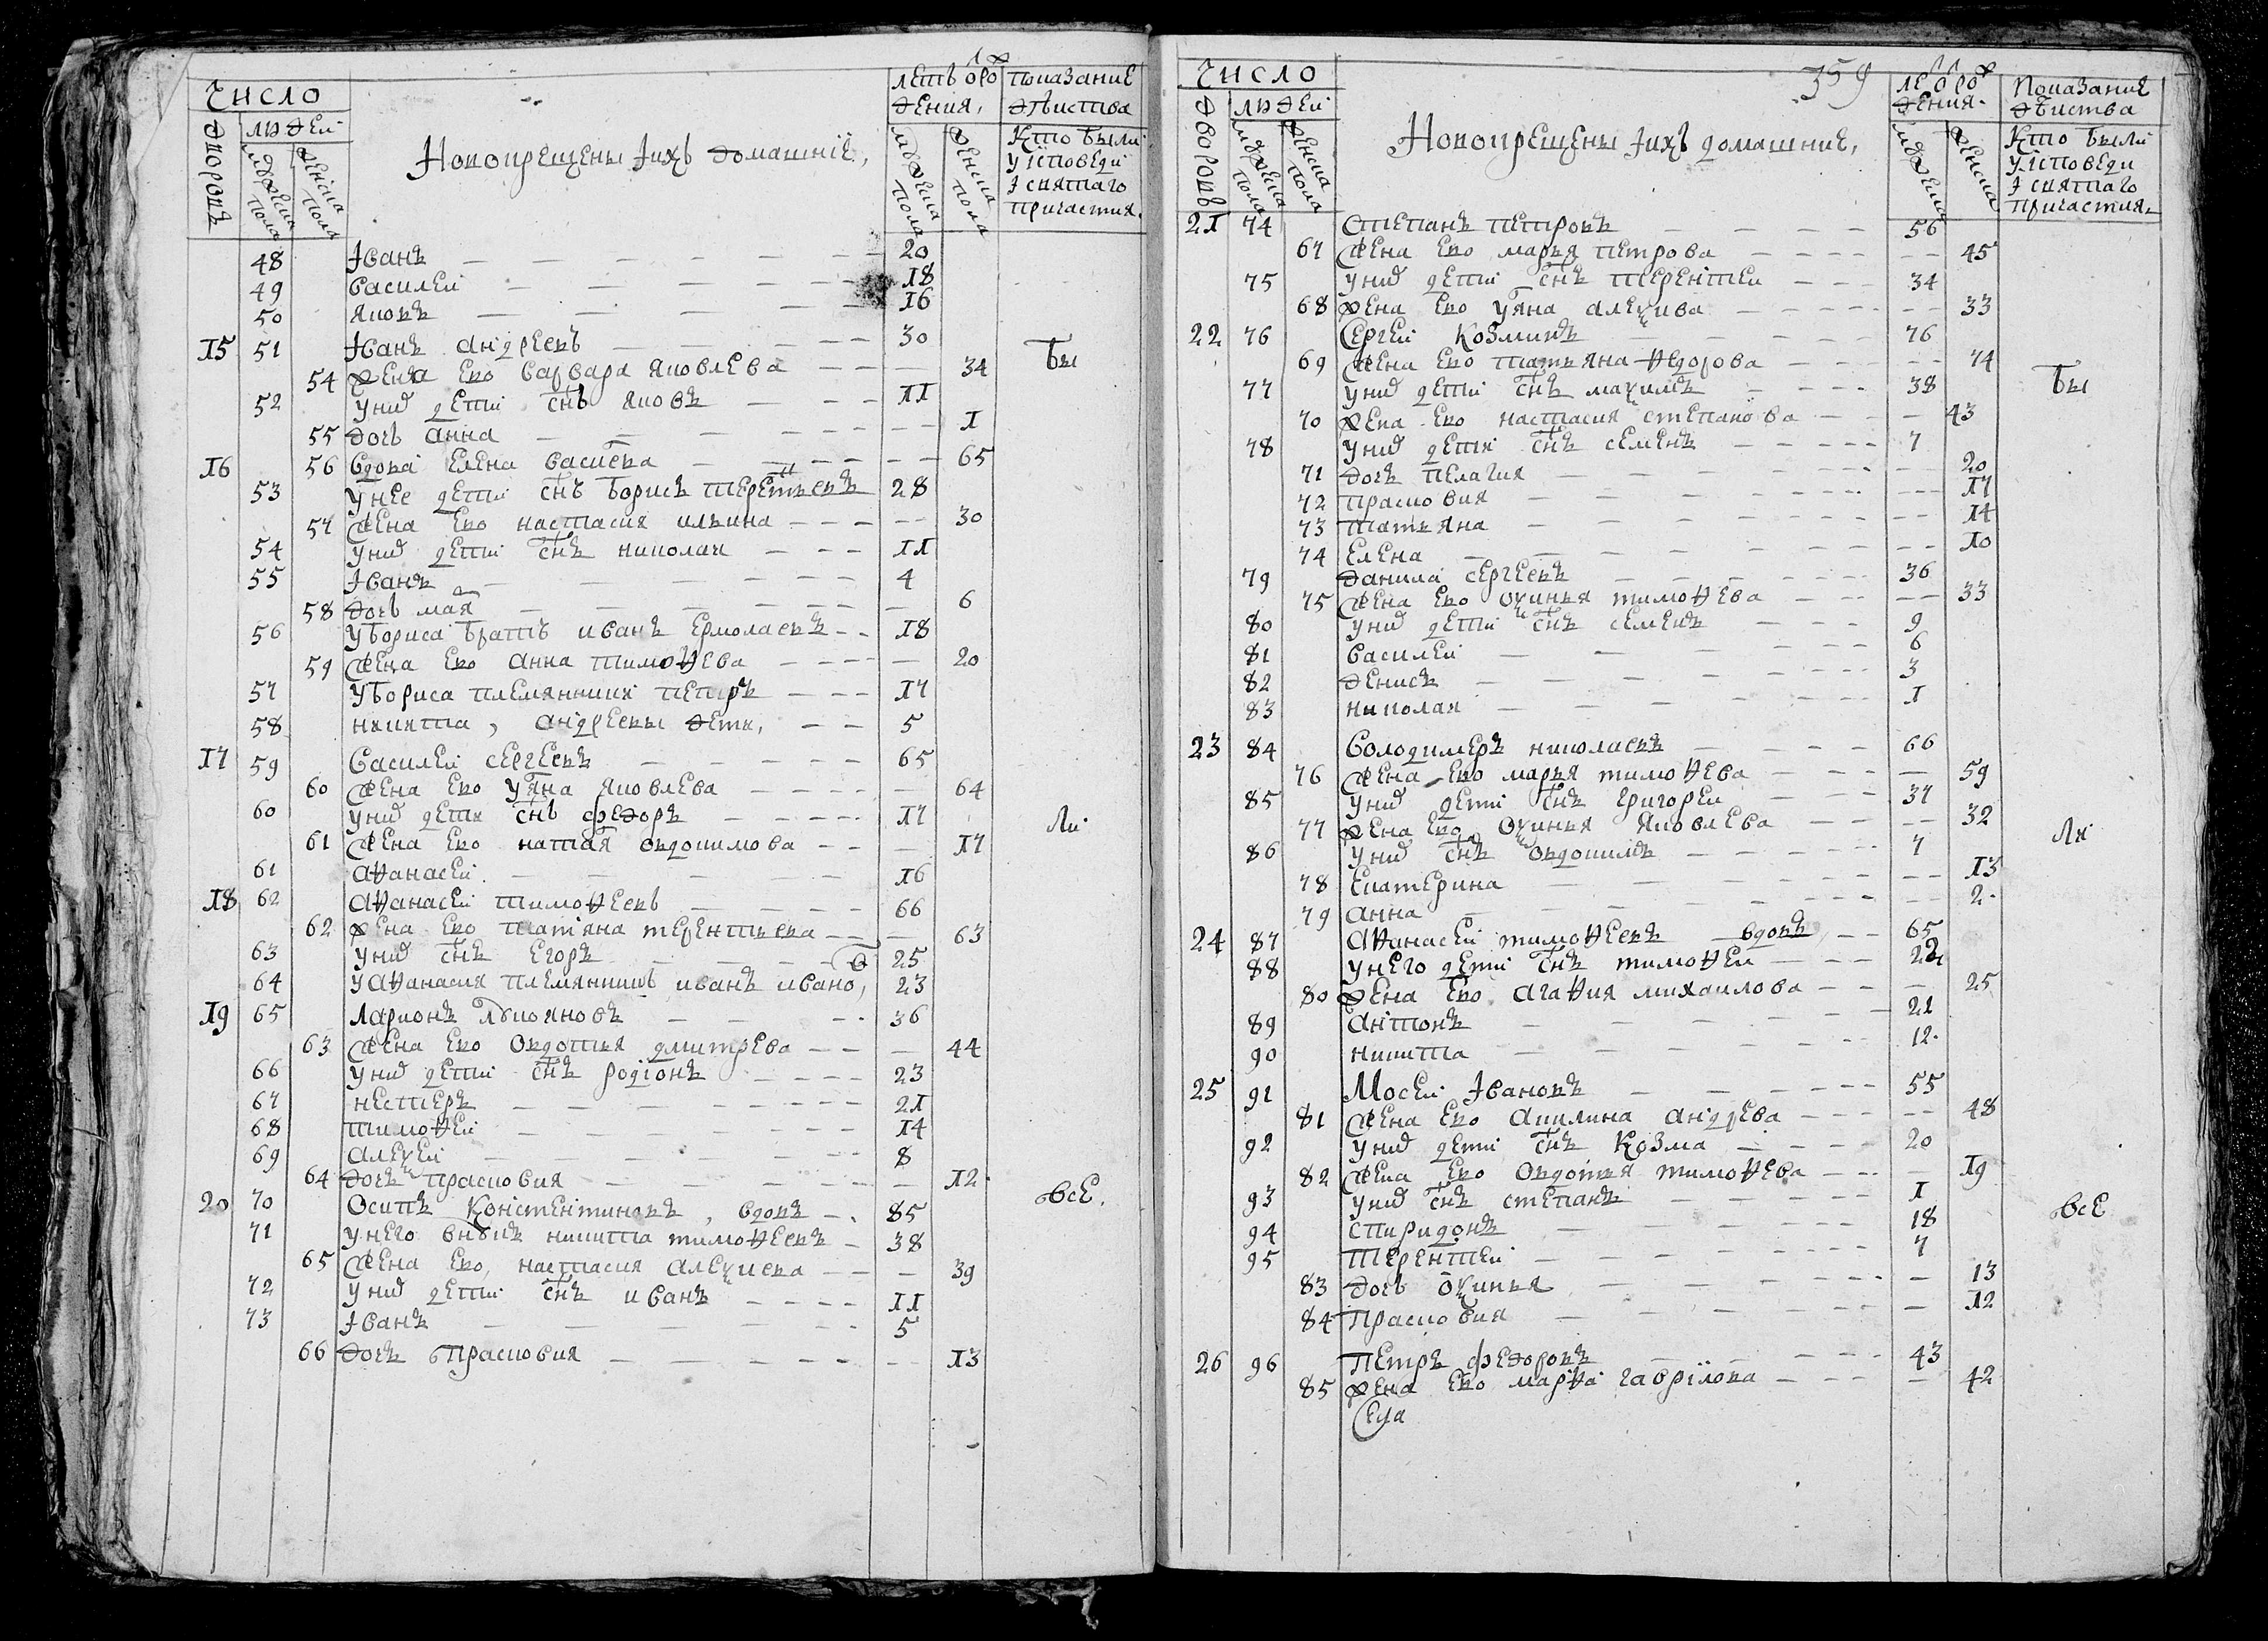 ЧИСЛО
Дворовъ
людей
мужеска пола
женска пола
Новокрещены и ихъ домашніе,
летъ от рождения,
мужеска пола
женска пола
показание действа
Кто были
у исповеди
и святаго
причастия.
48 Иванъ 20
49 Василеи 18
50 Яковъ 16
15 51 Иванъ Андреевъ 30 Бы
54 жена ево варвара яковлева 34
52 у них дети снъ яковъ 11
55 дочь анна 1
16 56 вдова Елена васиева 65
53 у нее дети снъ борисъ терентьевъ 28
57 жена ево настасия ильина 30
54 у них дети снъ николаи 11
55 Иванъ 4
58 дочь мая 6
56 у бориса братъ иванъ Ермолаевъ 18
59 жена ево анна тимоѳева 20
57 у бориса племянники петръ 17
58 никита, андреевы дети, 5
17 59 Василеи сергеевъ 65
60 жена ево уяна яковлева 64
60 у них дети снъ федоръ 17 Ли
61 жена ево натая овдокимова 17
61 аѳанасеи 16
18 62 аѳанасеи тимоѳеевъ 66
62 жена ево татяна терентьева 63
63 у них снъ Егоръ 25
64 у аѳанасия племянникъ иванъ ивано, в 23
19 65 Ларионъ лукояновъ 36
63 жена ево овдотья дмитрева 44
66 у них дети снъ родіонъ 23
67 нестеръ 21
68 тимоѳеи 14
69 алеѯеи 8
64 дочь прасковия 12
20 70 Осипъ Констентиновъ, вдовъ 85 все.
71 у него внукъ никита тимоѳеевъ 38
65 жена ево настасия алеѯиева 39
72 у них дети снъ иванъ 11
73 Иванъ 5
66 дочь прасковия 13
359
ЧИСЛО
Дворовъ
людей
мужеска пола
женска пола
Новокрещены и ихъ домашние,
ле от рождения.
мужеска
женска
Показание действа
Кто были
у исповеди
и святаго
причастия.
21 74 Степанъ петровъ 56
67 жена ево марья петрова 45
75 у них дети снъ терентеи 34
68 жена ево уяна алеѯива 33
22 76 Сергеи Козминъ 76
69 жена ево татьяна ѳедорова 74
77 у них дети снъ маѯимъ 38 Бы
70 жена ево настасия степанова 43
78 у них дети снъ семенъ 7
71 дочь пелагия 20
72 прасковия 17
73 татьяна 14
74 Елена 10
79 данила сергеевъ 36
75 жена ево оѯинья тимоѳева 33
80 у них дети снъ семенъ 9
81 василеи 6
82 денисъ 3
83 николая 1
23 84 Володимеръ николаевъ 66
76 жена ево марья тимоѳева 59
85 у них дети снъ григореи 37
77 жена ево оѯинья яковлева 32
86 у них снъ овдокимъ 7 Ли
78 Екатерина 13
79 анна 2
24 87 аѳанасеи тимоѳеевъ вдовъ, 65
88 у него дети снъ тимоѳеи 22
80 жена ево агаѳия михаилова 25
89 антонъ 21
90 никита 12
25 91 Мосеи Ивановъ 55
81 жена ево акилина андрева 48
92 у них дети снъ Козма 20
82 жена ево овдотья тимоѳева 19
93 у них снъ степанъ 1 все
94 спиридонъ 18
95 терентеи 7
83 дочь оѯинья 13
84 прасковия 12
26 96 Петръ федоровъ 43
85 жена ево марѳа гаврілова 42